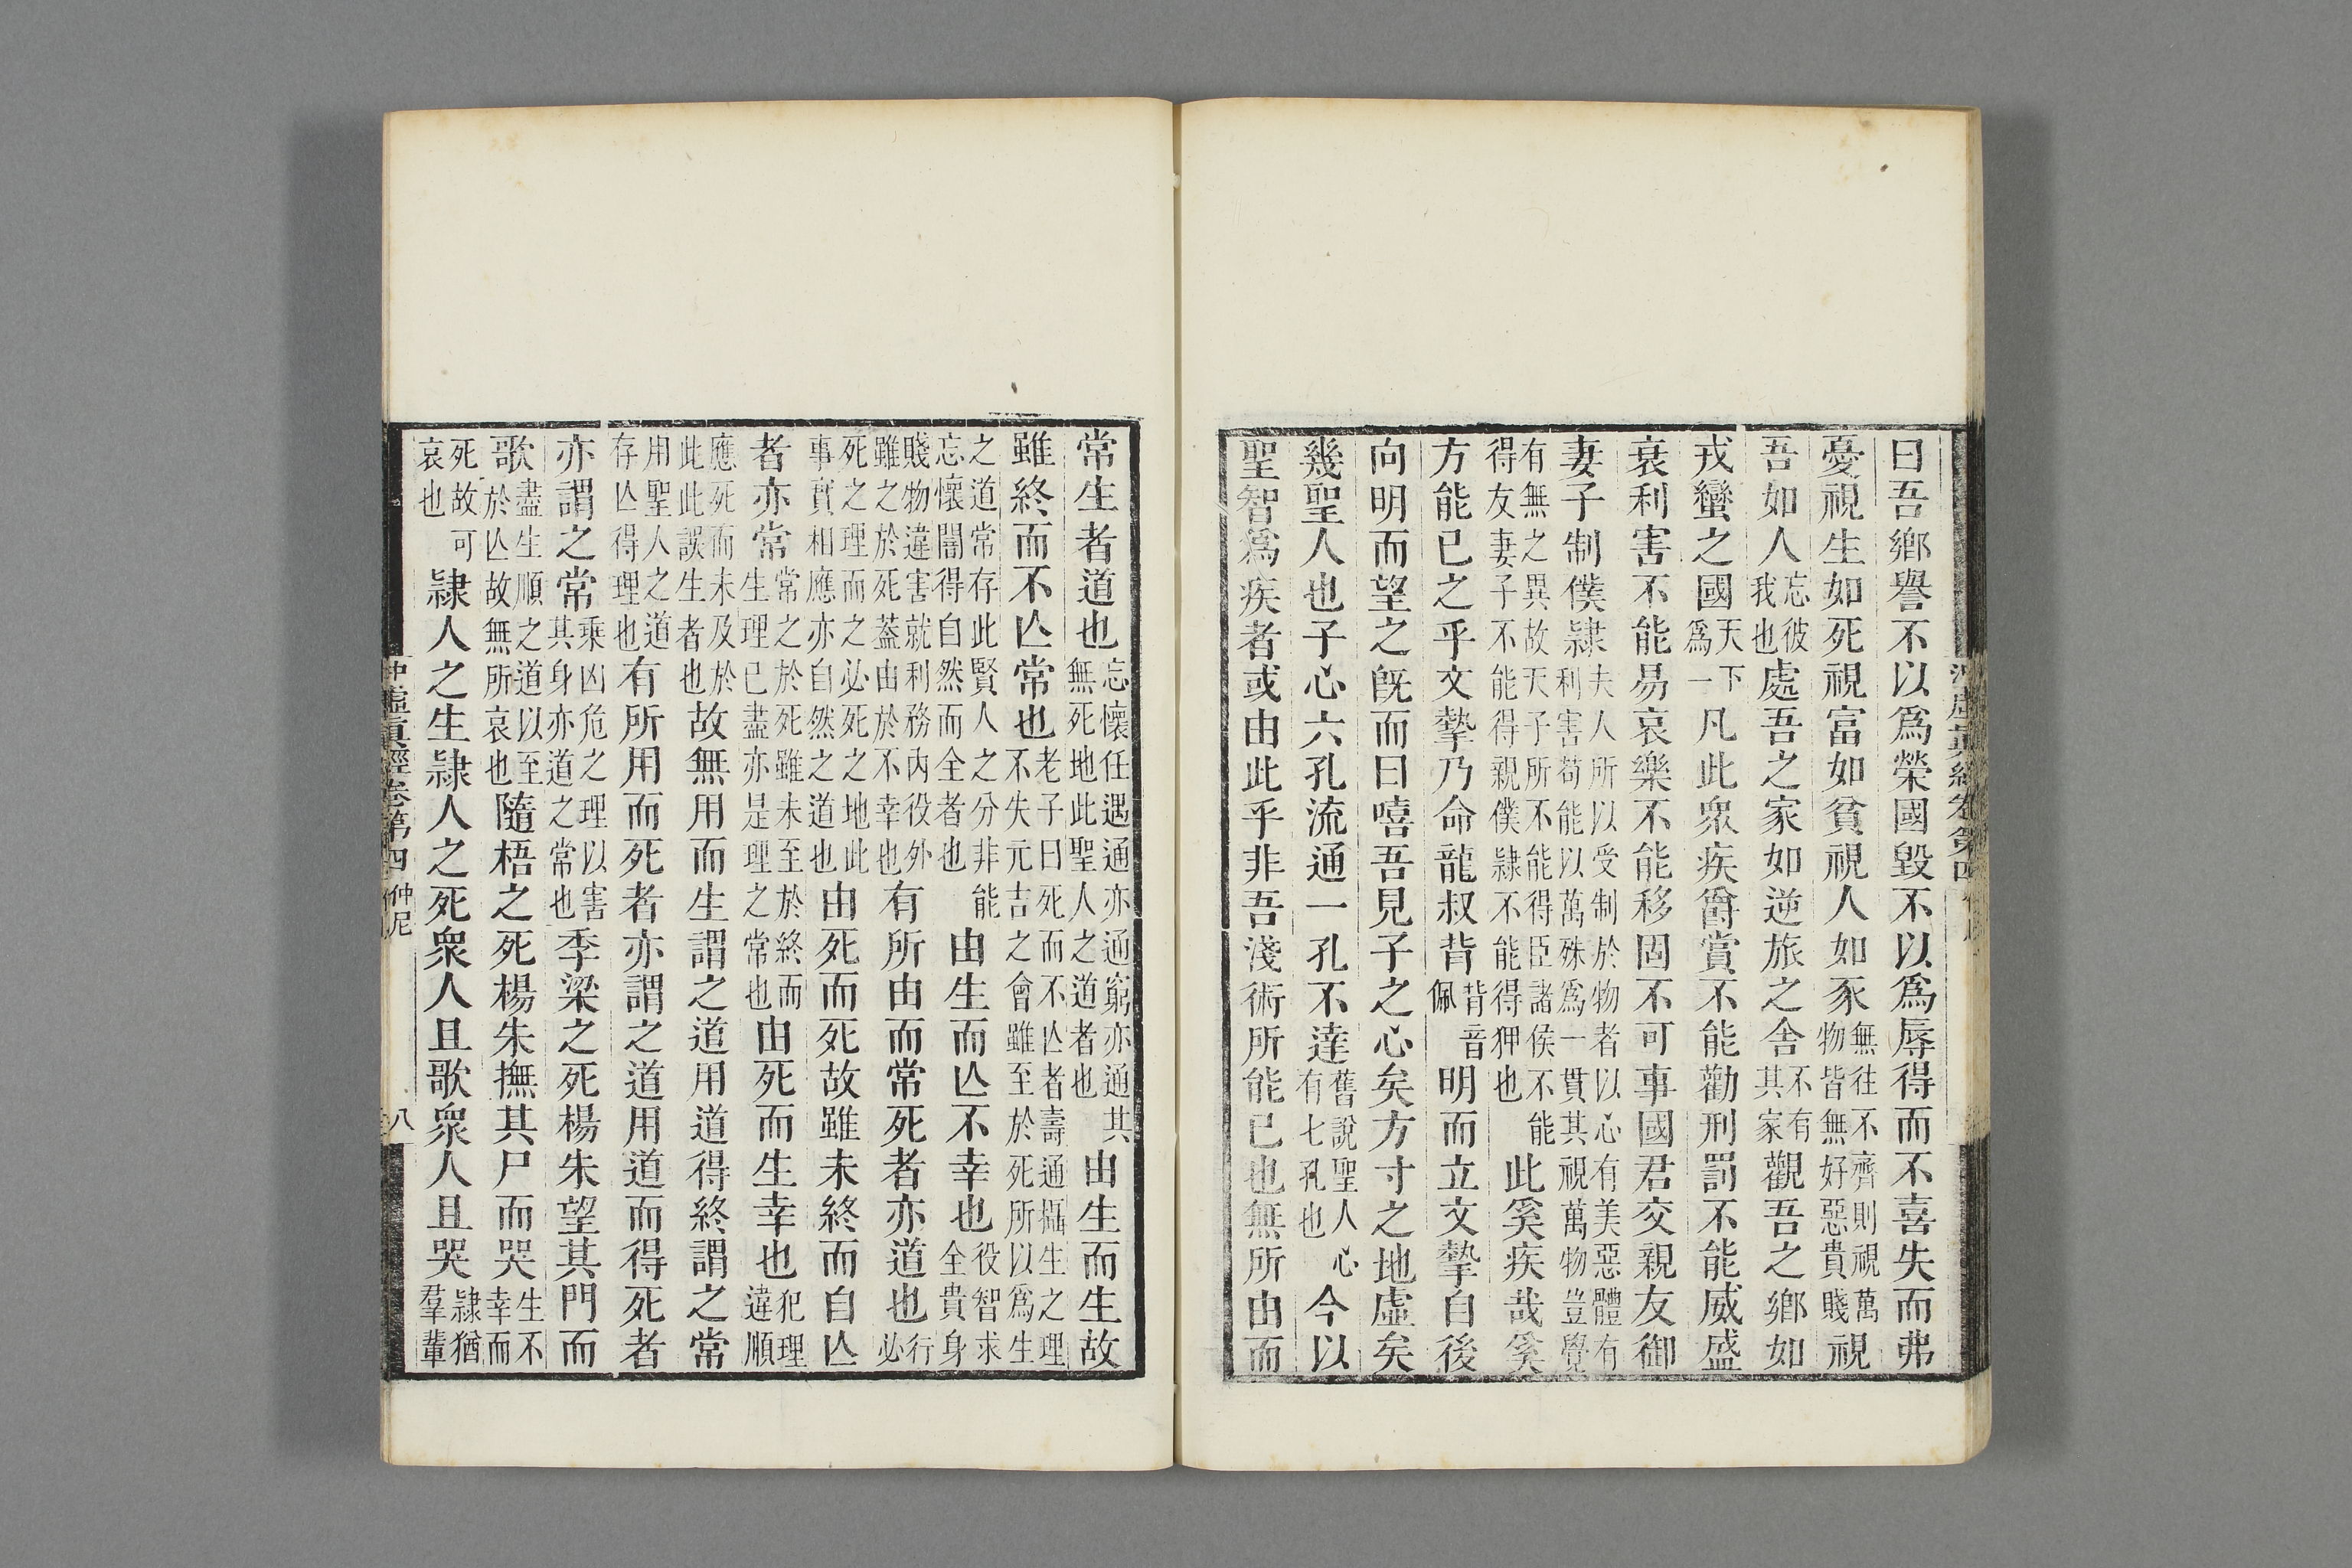 曰吾鄉譽不以爲榮國毀不以爲辱得而不喜失而弗
憂視生如死視富如貧視人如豕無往不齊則視萬物皆無好惡貴賤視
吾如人忘彼我也處吾之家如逆旅之舍不有其家觀吾之鄉如
戎蠻之國天下爲一凡此衆疾爵賞不能勸刑罰不能威盛
衰利害不能易哀樂不能移固不可事國君交親友御
妻子制僕隷夫人所以受制於物者以心有美惡體有利害苟能以萬殊爲一貫其視萬物豈覺
有無之異故天子所不能得臣諸侯不能得友妻子不能得親僕隷不能得狎也此奚疾哉奚
方能已之乎文摯乃命龍叔背背音佩明而立文摯自後
向明而望之既而曰嘻吾見子之心矣方寸之地虛矣
幾聖人也子心六孔流通一孔不達舊說聖人心有七孔也今以
聖智爲疾者或由此乎非吾淺術所能已也無所由而
常生者道也忘懷任遇通亦通窮亦通其無死地此聖人之道者也由生而生故
雖終而不亾常也老子曰死而不亾者壽通攝生之理不失元吉之會雖至於死所以爲生
之道常存此賢人之分非能忘懷闇得自然而全者也由生而亾不幸也役智求全貴身
賤物違害就利務內役外雖之於死蓋由於不幸也有所由而常死者亦道也行必
死之理而之必死之地此事實相應亦自然之道也由死而死故雖未終而自亾
者亦常常之於死雖未至於終而生理已盡亦是理之常也由死而生幸也犯理違順
應死而未及於此此誤生者也故無用而生謂之道用道得終謂之常
用聖人之道存亾得理也有所用而死者亦謂之道用道而得死者
亦謂之常乘凶危之理以害其身亦道之常也季梁之死楊朱望其門而
歌盡生順之道以至於亾故無所哀也隨梧之死楊朱撫其尸而哭生不幸而
死故可哀也隷人之生隷人之死衆人且歌衆人且哭隷猶羣輩
虛眞經卷第四 仲尼 八